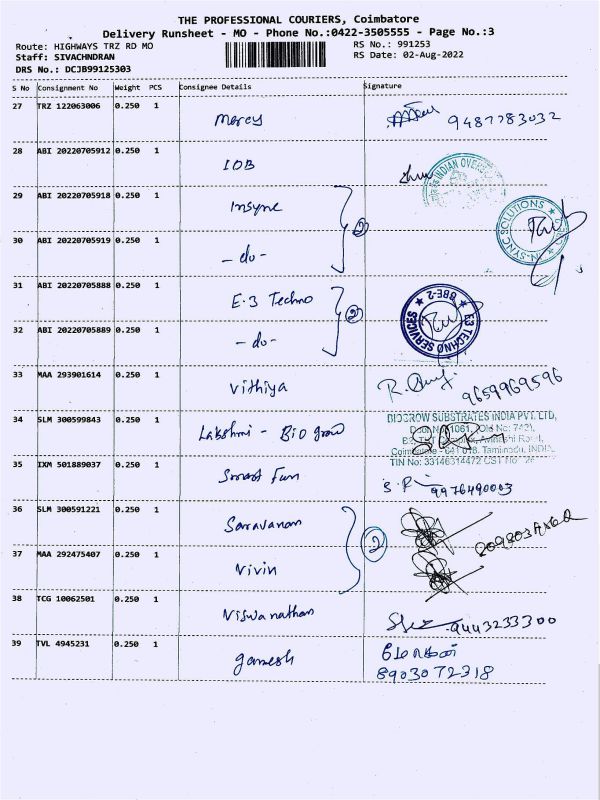 THE PROFESSIONAL COURIERS, Coimbatore
Delivery Runsheet - MO - Phone No.:0422-3505555 - Page No.:3
Route: HIGHWAYS TRZ RD MO
RS No.: 991253
Staff: SIVACHNDRAN
RS Date: 02-Aug-2022
DRS No.: DCJB99125303
S No Consignment No Weight PCS Consignee Details Signature
27 TRZ 122063006 0.250 1 Mercy 9487783032
28 ABI 20220705912 0.250 1 IOB INDIAN
29 ABI 20220705918 0.250 1 Insync
IN-SYNC SOLUTIONS
30 ABI 20220705919 0.250 1 - do - 2
31 ABI 20220705888 0.250 1 E.3 Techno
E3 TECHNO SERVICES
CBE-2
32 ABI 20220705889 0.250 1 - do - 2
33 MAA 293901614 0.250 1 Vithiya 9659969596
34 SLM 300599843 0.250 1 Lakshmi - Bio grow
SUBSTRATES INDIA PVT. LTD,
TIN No: 33146314472
35 IXM 501889037 0.250 1 Smart Fun 9976490003
36 SLM 300591221 0.250 1 Saravanan
37 MAA 292475407 0.250 1 Vivin 2
38 TCG 10062501 0.250 1 Viswanathan 9443233300
39 TVL 4945231 0.250 1 ganesh
8903072318